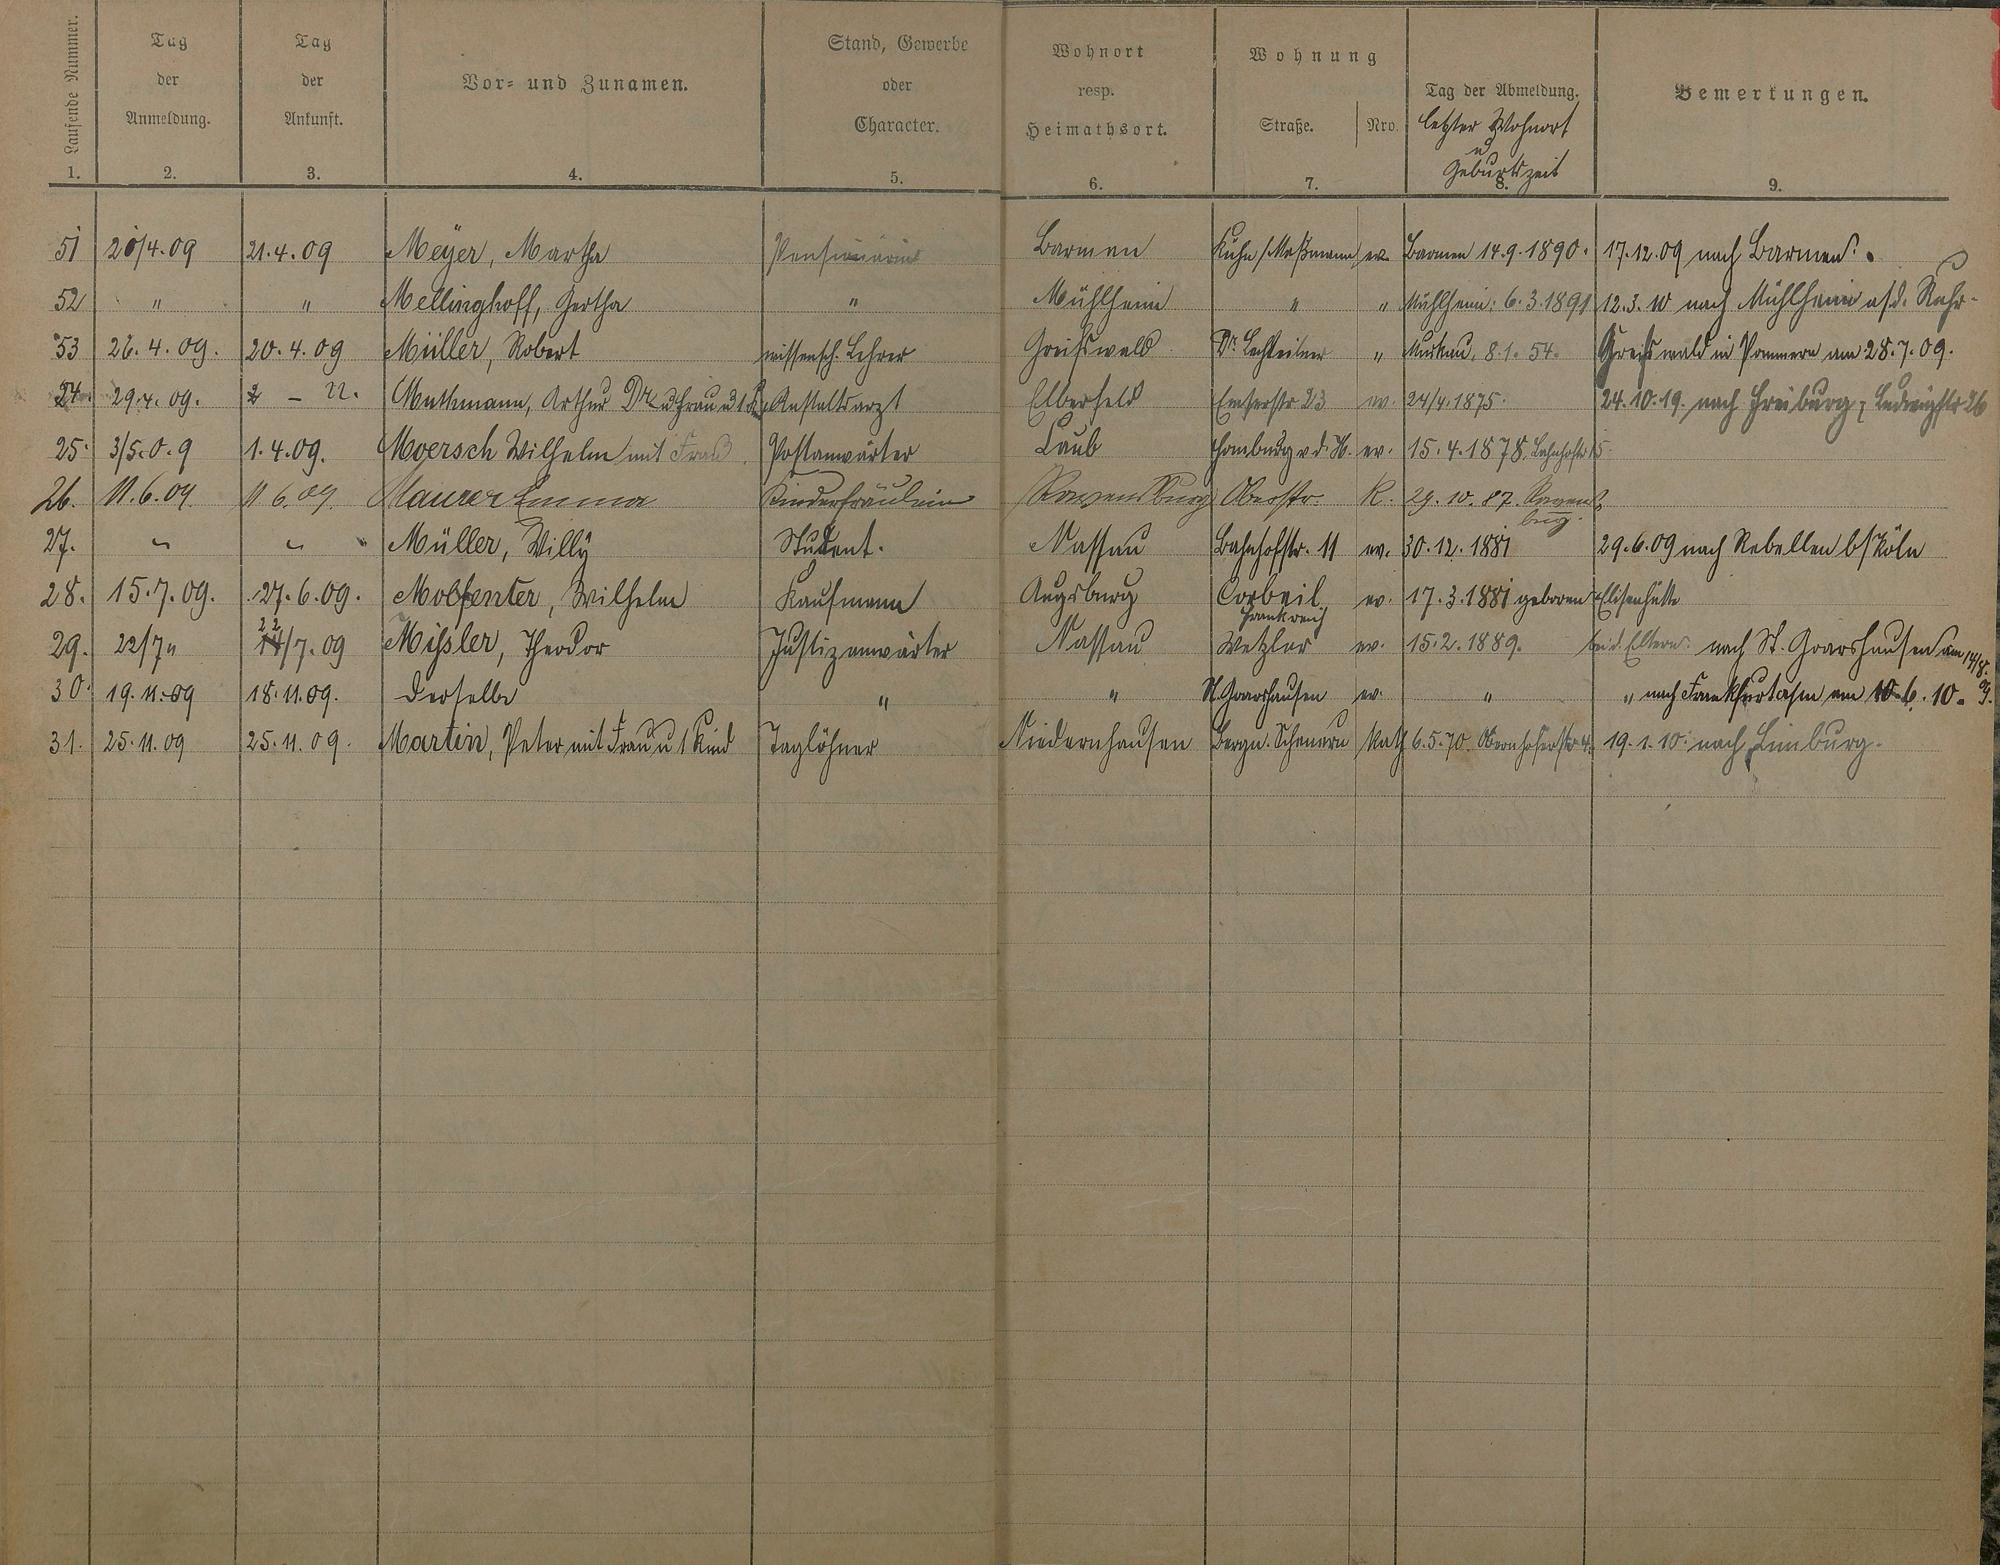 Laufende Nummer. Tag der Anmeldung. Tag der Ankunft. Vor- und Zunamen. Stand, Gewerbe oder Character. Wohnort resp. Heimathsort. Wohnung Straße. Nro. Tag der Abmeldung. letzter Wohnort u Geburtszeit Bemerkungen.
1. 2. 3. 4. 5. 6. 7. 8. 9.
51 20/4.09 21.4.09 Meyer, Martha Pensionärin Barmen Kuhn/Maßmann ev. Barmen 14.9.1890. 17.12.09 nach Barmen.
52 " " Mellinghoff, Gertha " Mühlheim " " Mühlheim: 6.3.1891 12.3.10 nach Mühlheim a/d. Ruhr.
53 26.4.09. 20.4.09 Müller, Robert wissensch. Lehrer Greifswald Dr " Muskau, 8.1.54. Greifswald in Pommern am 28.7.09.
24. 29.4.09. 2 – 22. Muthmann, Arthur Dr u Frau u 1 K. Anstaltsarzt Elberfeld Emserstr 23 ev. 24/4.1875. 24.10.19. nach Freiburg, Ludwigstr 26
25. 3/5.0.9 1.4.09. Moersch Wilhelm mit Frau. Postanwärter Caub Homburg v.d.H. ev. 15.4.1878. Bahnhofstr 15.
26. 11.6.09. 11.6.09. Maurer Emma Kinderfräulein Ravensburg Oberstr. K. 29.10.87. Ravensburg.
27. " " Müller, Willy Student. Nassau Bahnhofstr. 11 ev. 30.12.1881 29.6.09 nach Rebellen b/Köln
28. 15.7.09. 27.6.09. Molfenter, Wilhelm Kaufmann Augsburg Corbeil Frankreich ev. 17.3.1881 geboren Elisenhütte
29. 22/7 " 22 14/7.09 Missler, Theodor Justizanwärter Nassau Wetzlar ev. 15.2.1889. bei d. Eltern. nach St. Goarshausen am 14/8. 09.
30. 19.11.09 18.11.09. Derselbe " " St. Goarshausen ev. " " nach Frankfurt a/m am 10.6.10.
31. 25.11.09 25.11.09. Martin, Peter mit Frau u 1 Kind Taglöhner Niedernhausen Bergn. Scheuern Kath 6.5.70. Obernhoferstr 4. 19.1.10. nach Limburg.